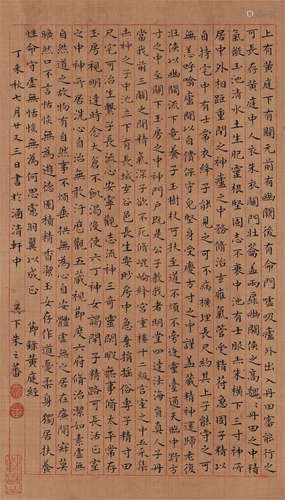 上有黃庭下有關元前有幽闕後有命門噓吸廬外出入丹田審能行之
可長存黃庭中人衣朱衣關門壯籥蓋兩扉幽闕俠之高巍巍丹田之中精
氣微玉池清水上生肥靈根堅固志不衰中池有士服赤朱橫下三寸神所
居中外相距重閉之神廬之中務脩治玄雍氣管受精符急固子精以
自持宅中有士常衣絳子能見之可不病橫理長尺約其上子能守之可
無恙呼噏廬間以自償保守完堅身受慶方寸之中謹蓋藏精神還歸老復
壯俠以幽闕流下竟養子玉樹可扶至道不煩不旁迕靈臺通天臨中野方
寸之中至關下玉房之中神門戶既是公子教我者明堂四達法海員真人子丹
當我前三關之間精氣深子欲不死脩崑崙絳宮重樓十二級宮室之中五采集
赤神之子中池立下有長城玄谷邑長生要眇房中急棄捐搖俗專子精寸田
尺宅可治生繫子長流心安寧觀志流神三奇靈閑暇無事脩太平常存
玉房視明達時念大倉不飢渴役使六丁神女謁閉子精路可長活正室
之中神所居洗心自治無敢汙歷觀五藏視節度六府脩治潔如素虛無
自然道之故物有自然事不煩垂拱無為心自安體虛無之居在廉間寂莫
曠然口不言恬惔無為遊德園積精香潔玉女存作道憂柔身獨居扶養
性命守虛無恬惔無為何思慮羽翼以成正 節錄黃庭經
丁未秋七月廿又三日書於涵清軒中 吳下朱之蕃